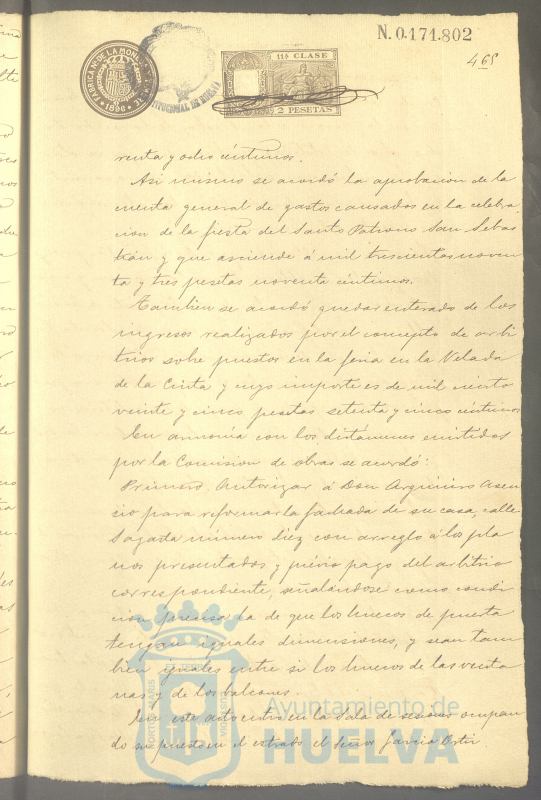 N. 0.171.802
465
FABRICA Nl. DE LA MONEDA Y TIMBRE
1896
11ª CLASE
2 PESETAS
venta y ocho céntimos.
Asi mismo se acordó la aprobacion de la
cuenta general de gastos causados en la celebra
cion de la fiesta del Santo Patrono San Sebas
tián y que asciende á mil trescientas noven
ta y tres pesetas noventa céntimos.
Tambien se acordó quedar enterado de los
ingresos realizados por el concepto de arbi
trios sobre puestos en la feria en la Velada
de la Cinta y cuyo importe es de mil ciento
veinte y cinco pesetas setenta y cinco céntimos
En armonía con los dictámenes emitidos
por la Comision de obras se acordó:
Primero. Autorizar á Don Argimiro Asen
cio para reformar la fachada de su casa, calle
Sagasta número diez con arreglo á los pla
nos presentados y prévio pago del arbitrio
correspondiente, señalándose como condi
cion precisa la de que los huecos de puerta
tengan iguales dimensiones, y sean tam
bien iguales entre si los huecos de las venta
nas y de los balcones.
En este acto entró en la Sala de sesiones ocupan
do su puesto en el estrado el Señor Garcia Ortiz.
Ayuntamiento de
HUELVA